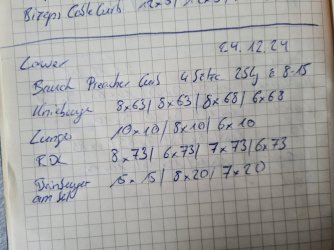 Biceps Cable Curls 12x5 / 12x5 /
Lower 24.12.24
Bauch Preacher Curls 4 Sätze 25kg à 8-15
Kniebeuge 8x63 / 8x63 / 8x68 / 6x68
Lunges 10x10 / 8x10 / 6x10
RDL 8x73 / 6x73 / 7x73 / 6x73
Beinbeuger 15x15 / 8x20 / 7x20
am